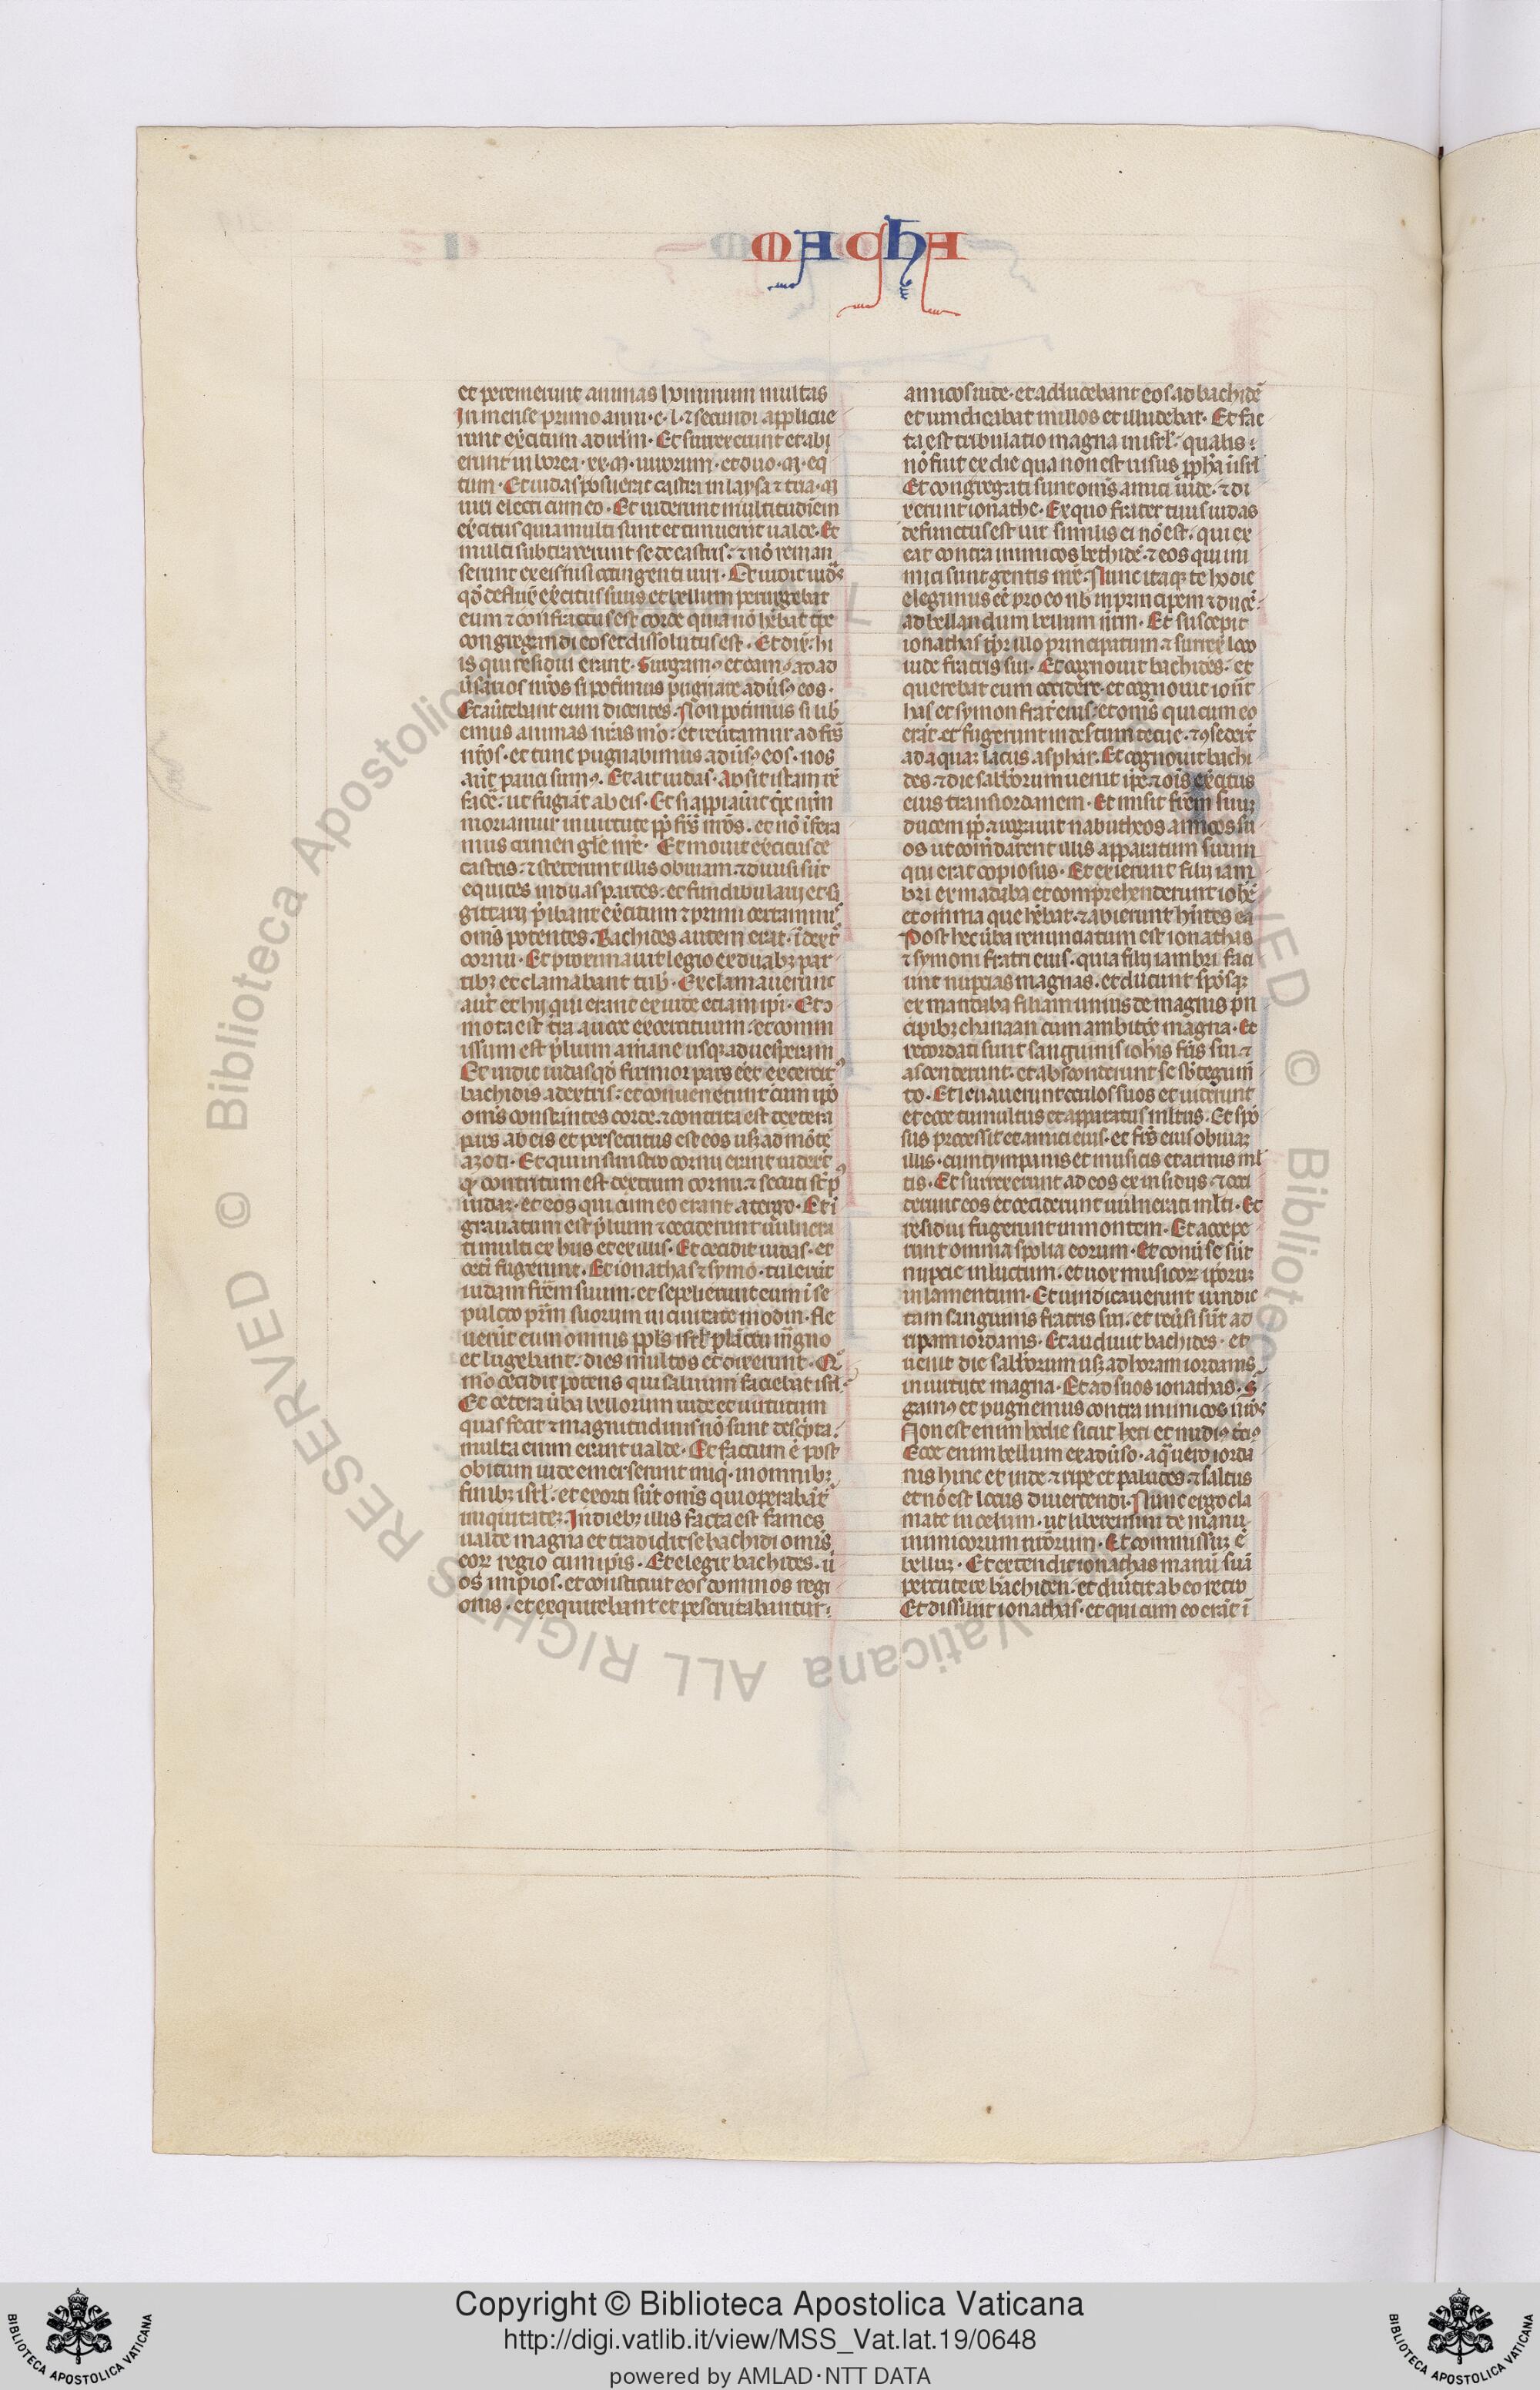 MACHA
et peremerunt animas hominum multas
In mense primo anni · c · l · ⁊ secundi applicue
runt exc̄itum ad irl̄m · Et surrexerunt et abi
erunt in borea · xx · M · uirorum · et duo · M · eq̄
tum · Et iudas posuerat castra in laysa ⁊ tria · M
uiri electi cum eo · Et uiderunt multitudīem
exc̄itus quia multi sunt et timuerūt ualde · Et
multi subtraxerunt se de castris · ⁊ nō reman
serunt ex eis nisi octingenti uiri · Et uidit iud̄
qd̄ deflux̄ exc̄itus suus et bellum perurgebat
eum ⁊ confractus est corde quia nō hēbat tp̄e
congregandi eos et dissolutus est · Et dix̄ · hi
is qui residui erant · Surgamꝰ et eamꝰ ad ad
ūsarios nr̄os si poterimus pugnare adūsꝰ eos ·
Et aūtebant eum dicentes · Non poterimus si lib̄
emus animas nr̄as mō · et reūtamur ad fr̄s
nr̄os · et tunc pugnabimus adūsꝰ eos · nos
aūt pauci sumꝰ · Et ait iudas · Absit istam rē
facē · ut fugiāt ab eis · Et si appiauit tp̄s nr̄m
moriamur in uirtute pp̄ fr̄s nr̄os · et nō īfera
mus crimen gl̄e nr̄e · Et mouit exc̄itus de
castris · ⁊ steterunt illis obuiam ⁊ diuisi sūt
equites in duas partes · et fundibularij et sa
gittarij p̄ibant exc̄itum ⁊ primi certaminis
om̄s potentes · Bachides autem erat · ī dext̄
cornu · Et proximauit legio ex duabꝫ par
tibꝫ et clamabant tub̄ · Exclamauerunt
aūt et hij qui erant ex iude etiam ip̄i · Et ↄ
mota est t̄ra a uoce exercituum · et comm
issum est p̄lium a mane usqꝫ ad uesperam
Et uidit iudas qd̄ firmior pars eēt exercitꝰ
bachidis a dextris · et conuenerunt cum ip̄o
om̄s constantes corde · ⁊ contrita est dextera
pars ab eis et persecutus est eos usqꝫ ad mōtē
azoti · Et qui in sinistro cornu erant uiderūt
qꝫ contritum est dextrum cornu · ⁊ secuti st̄ pꝰ
iudaꝫ · et eos qui cum eo erant a tergo · Et ī
grauatum est p̄lium ⁊ ceciderunt uulnera
ti multi ex hiis et ex illis · Et cecidit iudas · et
cet̄i fugerunt · Et ionathas ⁊ symō · tulerūt
iudam fr̄em suum · et sepelierunt eum ī se
pulcro pr̄m suorum in ciuitate modin · fle
uerūt eum omnis ppl̄s isrl̄ planctu magno
et lugebant · dies multos et dixerunt · Q̄
mō cecidit potens qui saluum faciebat isrl̄ ·
Et cetera ūba bellorum iude et uirtutum
quas fecit ⁊ magnitudinis nō sunt descp̄ta ·
multa enim erant ualde · Et factum ē post
obitum iude emerserunt iniq̄ · in omnibꝫ
finibꝫ isrl̄ · et exorti sūt om̄s qui operabāt̄
iniquitateꝫ · In diebꝫ illis facta est fames
ualde magna et tradidit se bachidi om̄is
eoꝝ regio cum ip̄is · Et elegit bachides · ui
os impios · et constituit eos dominos regi
onis · et exquirebant et perscrutabantur ·
amicos iude · et adducebant eos ad bachidē
et uindicabat in illos et illudebat · Et fac
ta est tribulatio magna in isrl̄ · qualis ·
nō fuit ex die qua non est uisus ppha in isrl̄
Et congregati sunt om̄s amici iude · ⁊ di
xerunt ionathe · Ex quo frater tuus iudas
defunctus est uir similis ei nō est · qui ex
eat contra inimicos bethidē · ⁊ eos qui ini
mici sunt gentis nr̄e · Nunc itaqꝫ te hodie
elegimus eē pro eo nb̄ in principem ⁊ ducē ·
ad bellandum bellum nr̄m · Et suscepit
ionathas tp̄r illo principatum ⁊ surrex̄ loco
iude fratris sui · Et cognouit bachides · et
querebat eum occidere · et cognouit ionat
has et symon frat̄ eius · et om̄s qui cum eo
erāt · et fugerunt in desertum tecue · ⁊ ↄsederūt
ad aquaꝫ lacus asphar · Et cognouit bachi
des · ⁊ die sabb̄orum uenit ip̄e · ⁊ ōis exc̄itus
eius trans iordanem · Et misit fr̄em suuꝫ
ducem pp̄li · ⁊ rogauit nabutheos amicos su
os ut cōmodarent illis apparatum suum
qui erat copiosus · Et exierunt filij iam
bri ex madaba et comprehenderunt ioh̄ē
et omnia que hēbat · ⁊ abierunt hn̄tes ea
Post hec ūba renunciatum est ionathas
⁊ symoni fratri eius · quia filij iambri faci
unt nupcias magnas · et ducunt sponsaꝫ
ex madaba filiam unius de magnis p̄n
cipibꝫ chanaan cum ambitiōe magna · Et
recordati sunt sanguinis ioh̄is fr̄is sui · ⁊
ascenderunt · et absconderunt se sb̄ tegum̄
to · Et leuauerunt oculos suos et uiderunt
et ecce tumultus et apparatus mltus · Et spō
sus processit et amici eius · et fr̄s eius obuiaꝫ
illis · cum tympanis et musicis et armis ml̄
tis · Et surrexerunt ad eos ex insidijs · ⁊ occi
derunt eos et ceciderunt uulnerati ml̄ti · Et
residui fugerunt in montem · Et accepe
runt omnia spolia eorum · Et conūse sūt
nupcie in luctum · et uox musicoꝝ ip̄oruꝫ
in lamentum · Et uindicauerunt uindic
tam sanguinis fratris sui · et reūsi sūt ad
ripam iordanis · Et audiuit bachides · et
uenit die sabb̄orum usqꝫ ad horam iordanis
in uirtute magna · Et ad suos ionathas · S̄
gamꝰ et pugnemus contra inimicos nr̄os
Non est enim hodie sicut heri et nudiꝰ t̄ciꝰ
Ecce enim bellum ex adūso · aqua uero iorda
nis hinc et inde ⁊ ripe et paludes · ⁊ saltus
et nō est locus diuertendi · Nunc ergo cla
mate in celum · ut liberemini de manu
inimicorum ur̄orum · Et commissuꝫ ē
belluꝫ · Et extendit ionathas manū suā
percutere bachiden · et diūtit ab eo retro
Et dissiliit ionathas · et qui cum eo erāt ī
Copyright © Biblioteca Apostolica Vaticana
http://digi.vatlib.it/view/MSS_Vat.lat.19/0648
powered by AMLAD·NTT DATA
BIBLIOTECA APOSTOLICA VATICANA
BIBLIOTECA APOSTOLICA VATICANA
© Biblioteca Apostolica Vaticana ALL RIGHTS RESERVED